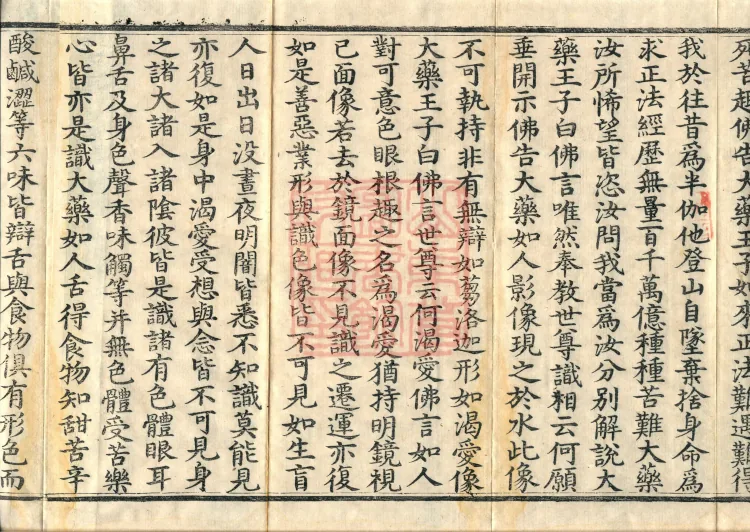 死苦趣佛告大藥王子如來正法難遇難得
我於往昔爲半伽他登山自墜棄捨身命爲
求正法經歷無量百千萬億種種苦難大藥
汝所悕望皆恣汝問我當爲汝分別解說大
藥王子白佛言唯然奉教世尊識相云何願
垂開示佛告大藥如人影像現之於水此像
不可執持非有無辯如蒭洛迦形如渴愛像
大藥王子白佛言世尊云何渴愛佛言如人
對可意色眼根趣之名爲渴愛猶持明鏡視
已面像若去於鏡面像不見識之遷運亦復
如是善惡業形與識色像皆不可見如生盲
人日出日没晝夜明闇皆悉不知識莫能見
亦復如是身中渴愛受想與念皆不可見身
之諸大諸入諸陰彼皆是識諸有色體眼耳
鼻舌及身色聲香味觸等并無色體受苦樂
心皆亦是識大藥如人舌得食物知甜苦辛
酸鹹澀等六味皆辯舌與食物俱有形色而